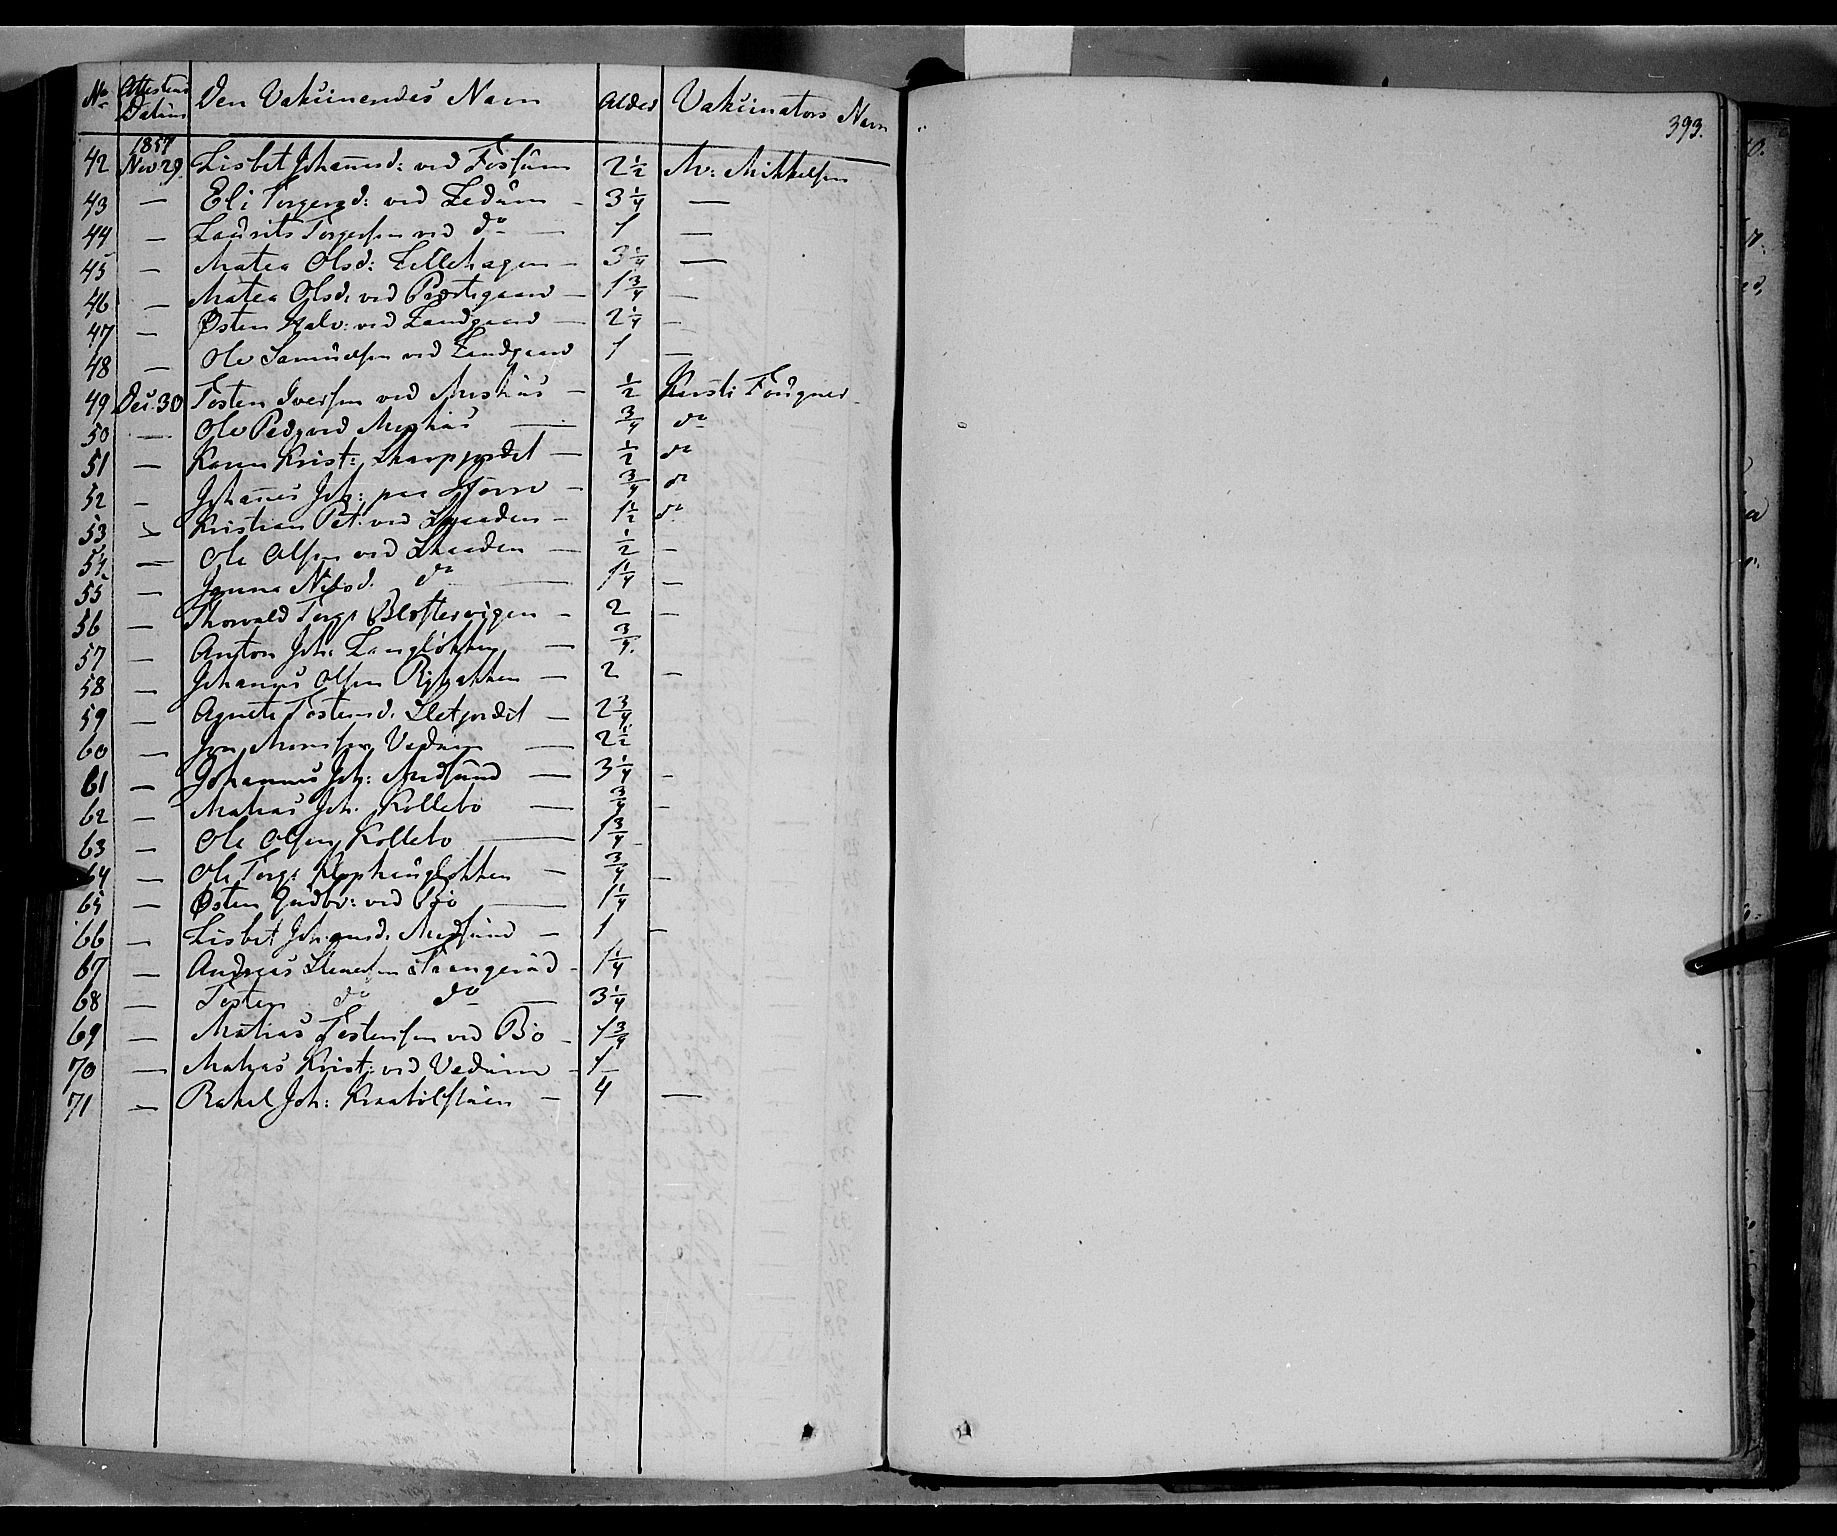 No Attestens Datum Den Vaksinerendes Navn Alder Vaksinators Navn
393.
1857
42 Nov 29. Lisbet Johannesd: ved Fossum 2 1/2 M: Mikkelsen
43 — Eli Torgersd: ved Ledum - 3 1/4 —
44 — Laurits Torgersen ved do — 1 —
45 — Matea Olsd: Lillehagen - 3 1/4 —
46 — Matea Olsd: ved Prestegaard - 1 3/4 —
47 — Østen Halv: ved Landgaard — 2 1/4 —
48 — Ole Samuelsen ved Landgaard 1 —
49 Des: 30 Tosten Iversen ved - 1/2 Kersti Fougner
50 — Ole Ped: ved — 3/4 do
51 — Karen Krist: Skarpjordet - 1/2 do
52 — Johannes Joh: paa - 3/4 do
53 — Kristian Pet: ved Skaaden - 1 1/2 do
54 — Ole Olsen ved Skaaden — 1/2 —
55 — Nilsd. do — 1 1/4 —
56 — Thorvald Torg: Klostervigen - 2 —
57 — Anton Joh: Langløkken — 3/4
58 — Johannes Olsen - 2 —
59 — Agnete Tostensd. Sletjordet — 2 3/4
60 — Jon Monsen Vedum — 2 1/2
61 — Johannes Joh: Medsund — 3 1/4 -
62 — Matias Joh. Kollebo — 3/4 -
63 — Ole Olsen Kollebo — 1 3/4
64 — Ole Torg: Klophaugløkken — 3/4 —
65 — Østen Gudbr: ved Bø — 1 1/4
66 — Lisbet Johannesd. Medsund — 1 —
67 — Andreas Stenersen Trangerud - 1 1/4
68 — Tosten do do — 3 1/4
69 — Matias Tostensen ved Bø - 1 3/4
70 — Matias Krist: ved Vedum - 1
71 — Rakel Joh: — 4 —